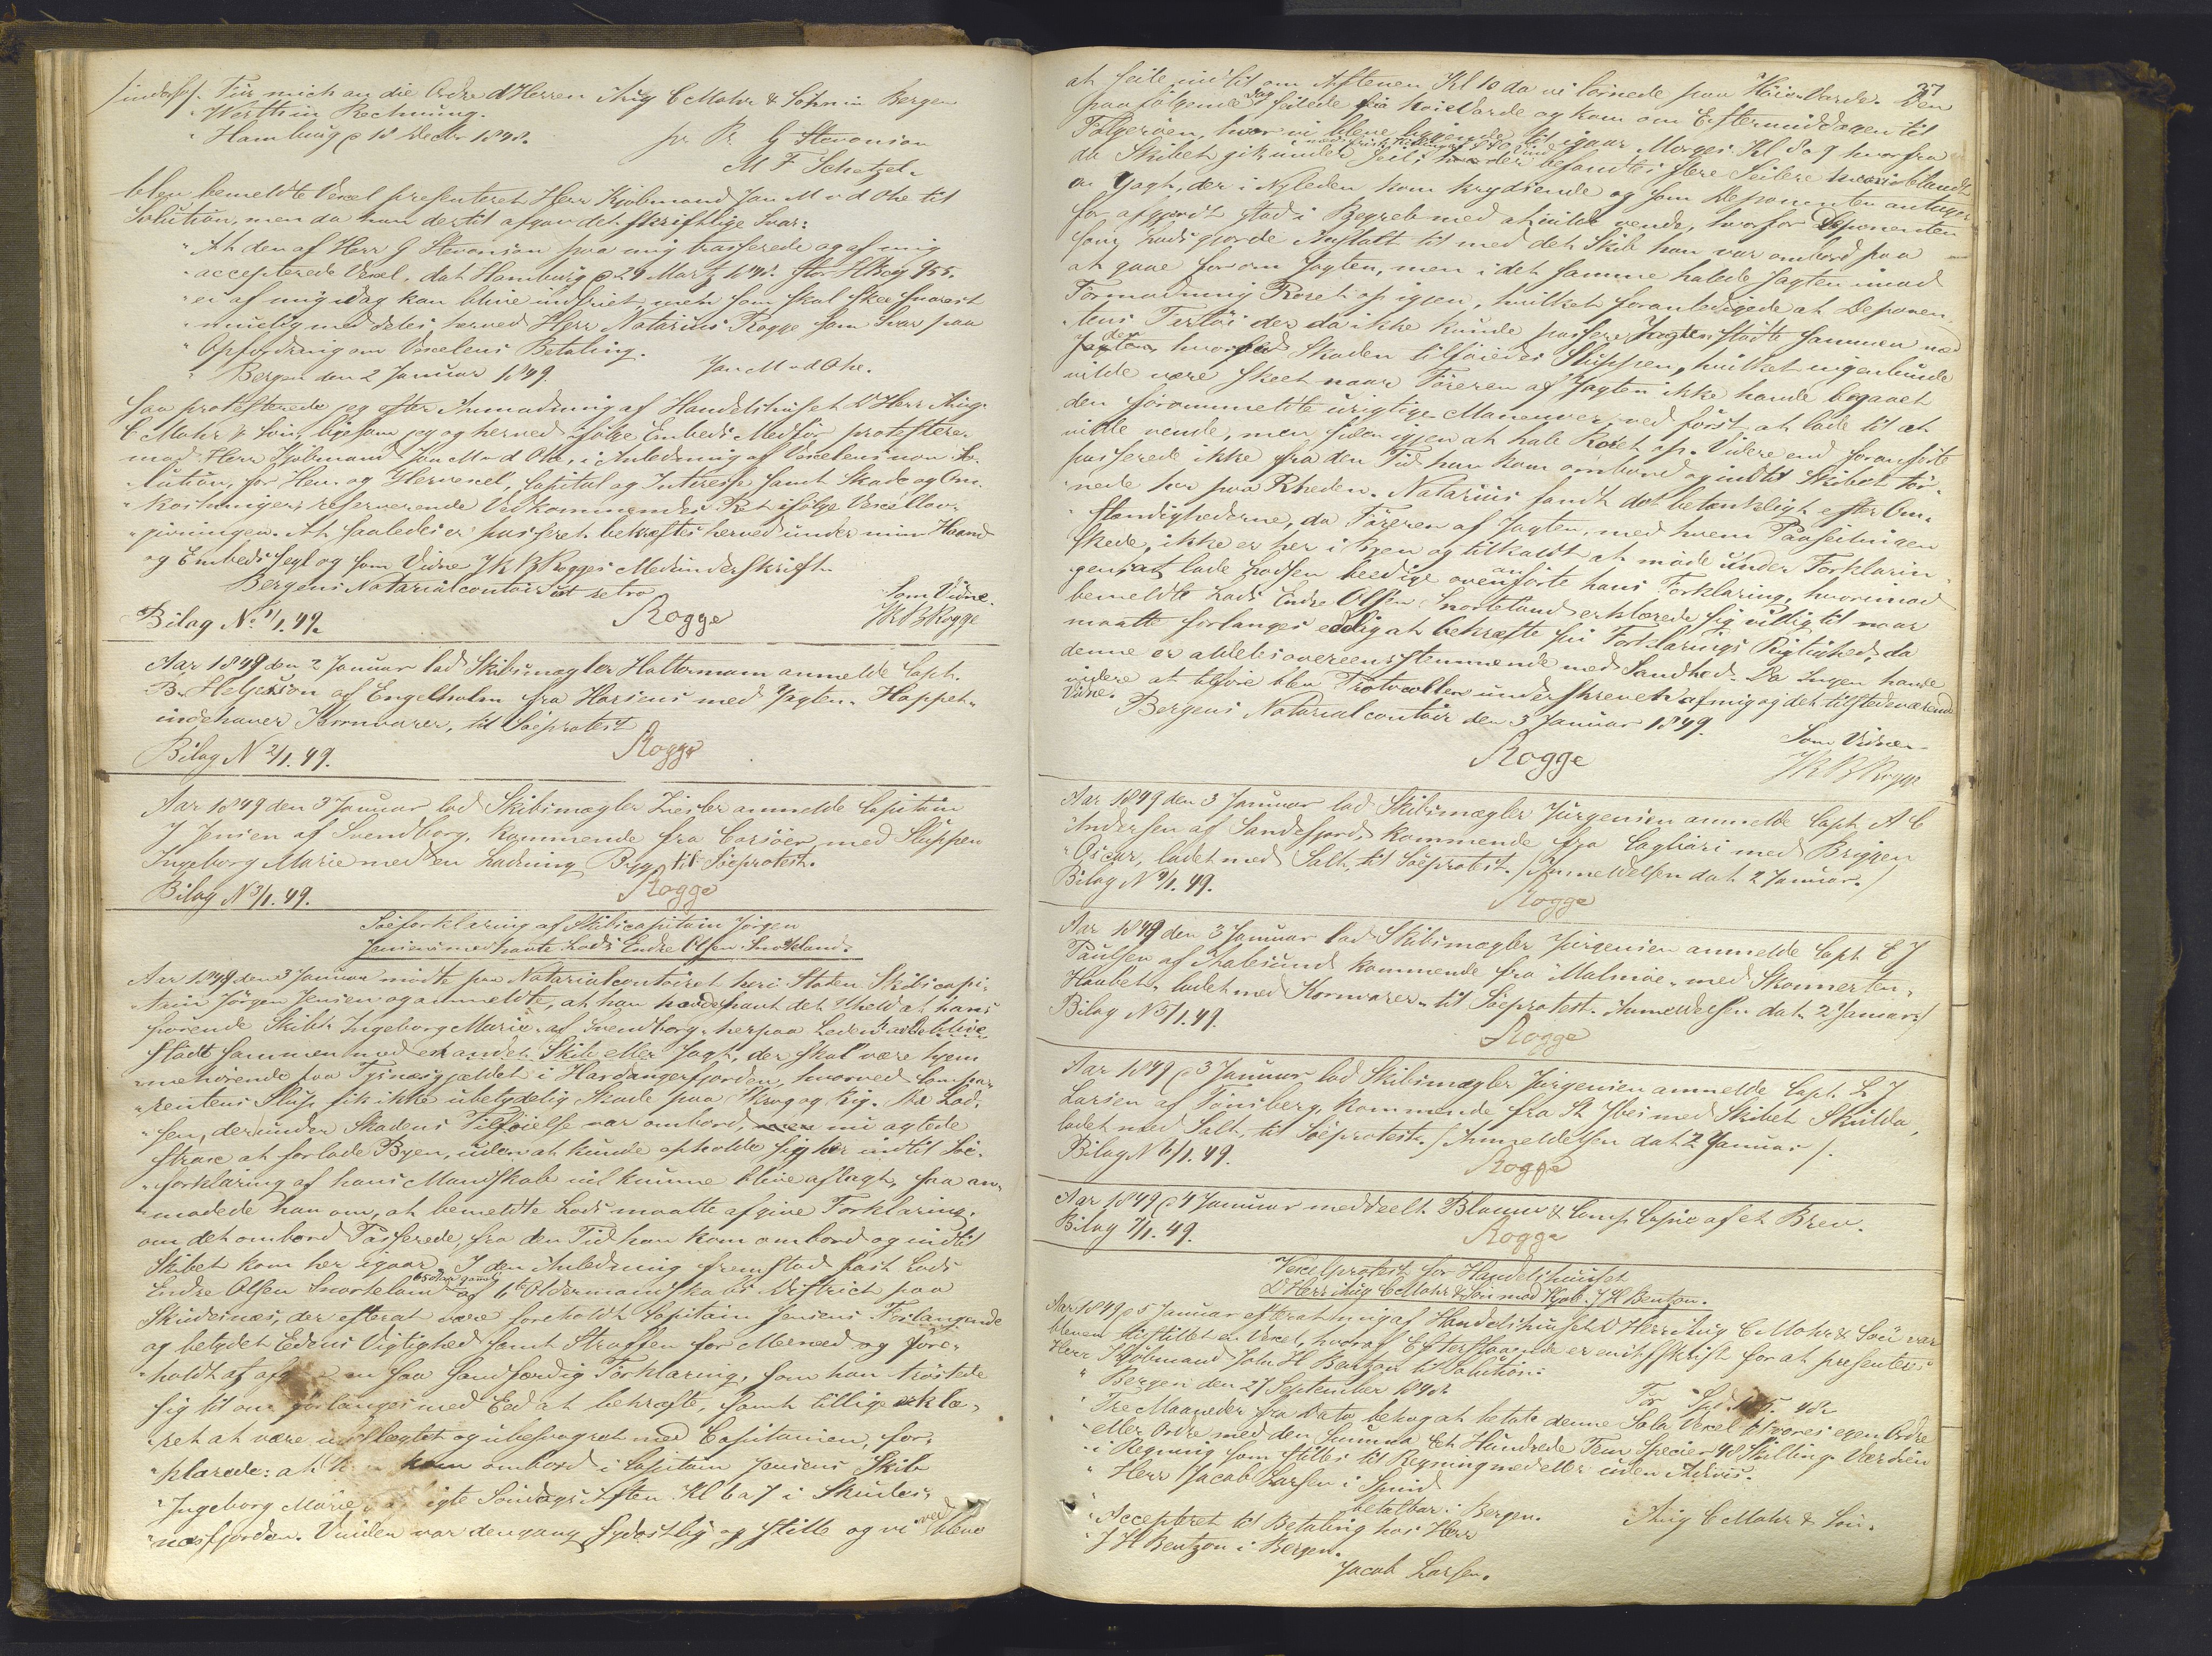 Für mich an die Ordre d'Herren Aug C Mohr & Söhn in Bergen
Werth in Rechnung.
Hamburg p 18 Decbr 1848.
pr Pr. G Stevenson
M F Schetzel
blev bemeldte Vexel præsenteret Herr Kjøbmand Jan M v d Ohe til
Solution, men da han dertil afgav det skriftlige Svar:
"At den af Herr G Stevenson paa mig trasserede og af mig
"accepterede Vexel, dat Hamburg p 29 Martz 1848. stor HBco 955.
"ei af mig idag kan blive indfriet men som skal skee snarest
"muelig meddeles herved Herr Notarius Rogge som Svar paa
"Opfordring om Vexelens Betaling.
"Bergen den 2 Januar 1849. Jan M v d Ohe.
saa protesterede jeg efter Anmodning af Handelshuset D'Herr Aug.
C Mohr & Søn, ligesom jeg og herved ifølge Embeds Medfør protesterer
mod Herr Kjøbmand Jan M v d Ohe, i Anledning af Vexelens non So-
lution, for Hen- og Gjenvexel, Capital og Interesse samt Skade og Om-
kostninger, reserverende Vedkommendes Ret ifølge Vexellov-
givningen. At saaledes er passeret bekræftes herved under min Haand
og Embeds Segl og som Vidne J K B Rogges Medunderskrift.
Bergens Notarialcontoir ut retro
Som Vidne.
Bilag No 1/1.49. Rogge JKBRogge
Aar 1849 den 2 Januar lod Skibsmægler Haltermann anmelde Capt.
B. Heljesson af Engelholm fra Horsens med Jagten Hoppet
indehaver Kornvarer, til Søeprotest
Bilag N 2/1.49. Rogge
Aar 1849 den 3 Januar lod Skibsmægler anmelde Capitain
J Jensen af Svendborg, kommende fra Corsöer, med Sluppen
Ingeborg Marie med en Ladning Byg, til Søeprotest.
Bilag N 3/1.49. Rogge
Søeforklaring af Skibscapitain Jörgen
Jensens med havte Lods Endre Olsen Snorteland.
Aar 1849 den 3 Januar mødte paa Notarialcontoiret her i Staden Skibscapi-
tain Jörgen Jensen og anmeldte, at han havde havt det Uheld at hans
førende Skib Ingeborg Marie af Svendborg herpaa Leden at blive
stødt sammen med et andet Skib eller Jagt, der skal være hjem-
mehørende paa Tysnæsgjældet i Hardangerfjorden, hvorved Compa-
rentens Slup fik ikke ubetydelig Skade paa Skrog og Rig. Da Lod-
sen, der under Skadens Tilføielse var ombord, nu agtede
strax at forlade Byen, uden at kunde opholde sig her indtil Søe-
forklaring af hans Mandskab vil kunne blive aflagt, saa an-
modede han om, at bemeldte Lods maatte afgive Forklaring,
om det ombord Passerede, fra den Tid han kom ombord og indtil
Skibet kom her igaar. I den Anledning fremstod fast Lods
Endre Olsen Snorteland 65 Aar gammel af 1ste Oldermandskabs District paa
Skudesnæs, der efterat være foreholdt Capitain Jensens Forlangende
og betydet Edens Vigtighed samt Straffen for Meeneed og fore-
holdt at afgive en saa sandfærdig Forklaring, som han trøstede
sig til om forlanges med Eed at bekræfte, samt tillige erklæ-
ret at være ubeslægtet og ubesvogret med Capitainen, for-
klarede: at han kom ombord i Capitain Jensens Skib
Ingeborg Marie Søndags Aften Kl 6 a 7 i Skudes-
næsfjorden. Vinden var dengang sydostlig og stille og vi ved bleve
37
at seile indtil om Aftenen Kl 10 da vi lænede paa Høievarde. Den
paafølgende Dag seilede fra Høievarde og kom om Eftermiddagen til
Folgerøen, hvor vi bleve liggende til igaar Morges Kl 8 a 9 hvorfra
da Skibet gik under Seil; her befandtes flere Seilere hvoriblandt
en Jagt, der i Nyleden kom krydsende og som Deponenten antager
for afgjordt stod i Begreb med at ville vende, hvorfor Deponenten
som Lods gjorde Anstalt til med det Skib han var ombord paa
at gaae for om Jagten, men i det samme halede Jagten imod
Formodning Roret op igjen, hvilket foranledigede at Deponen-
tens Fartøi der da ikke kunde passere Jagten stødte sammen med
den hvorved Skaden tilføiedes Sluppen, hvilket ingenlunde
vilde være skeet naar Føreren af Jagten ikke havde begaaet
den førommeldte urigtige Maneuver ved først at lade til at
ville vende, men siden igjen at hale Roret op. Videre end foranførte
passerede ikke fra den Tid han kom ombord og indtil Skibet tør-
nede her paa Rheden. Notarius fandt det betænkeligt efter Om-
stændighederne, da Føreren af Jagten, med hvem Paaseilingen
skede, ikke er her i Byen og tilkaldt at møde under Forklarin-
gen, at lade Lodsen beedige ovenanførte hans Forklaring, hvorimod
bemeldte Lods Endre Olsen Snorteland erklærede sig villig til naar
maatte forlanges edelig at bekræfte sin Forklarings Rigtighed, da
denne er aldeles overeensstemmende med Sandhed. Da Ingen havde
videre at tilføie blev Protocollen underskrevet af mig og det tilstedeværende
Vidne.
Bergens Notarialcontoir den 3 Januar 1849.
Som Vidne
Rogge JKBRogge
Aar 1849 den 3 Januar lod Skibsmægler Jürgensen anmelde Capt A C
Andersen af Sandefjord kommende fra Cagliari med Briggen
Oscar, ladet med Salt, til Søeprotest. /Anmeldelsen dat 2 Januar./
Bilag N 4/1.49.
Rogge
Aar 1849 den 3 Januar lod Skibsmægler Jürgensen anmelde Capt C J
Paulsen af kommende fra Malmöe med Skonnerten
Haabet ladet med Kornvarer til Søeprotest. Anmeldelsen dat 2 Januar/
Bilag N 5/1.49.
Rogge
Aar 1849 p 3 Januar lod Skibsmægler Jürgensen anmelde Capt. L J
Larsen af Tönsberg, kommende fra St Ybes med Skibet Skulda,
ladet med Salt, til Søeprotest. /Anmeldelsen dat 2 Januar/.
Bilag N 6/1.49.
Rogge
Aar 1849 p 4 Januar meddeelt Blauw & Comp Copie af et Brev.
Bilag 7/1.49.
Rogge
Vexelprotest for Handelshuuset
D'Herr Aug C Mohr & Søn mod Kjøb. J H Bentzon.
Aar 1849 p 5 Januar efterat mig af Handelshuset D'Herr Aug C Mohr & Søn var
bleven tilstillet en Vexel, hvoraf Efterstaaende er en Udskrift for at presentere
Herr Kjøbmand John H Bentzon til Solution:
"Bergen den 27 September 1848
For Spd 105. 48s
"Tre Maaneder fra Dato behag at betale denne Sola Vexel til vores egen Ordre
"eller Ordre med den Summa Eet Hundrede Fem Specier 48 Skilling. Værdien
"i Regning som stilles til Regning med eller uden Advis.
"Herr Jacob Larsen i Spind
betalbar i Bergen. Aug C Mohr & Søn.
"Accepteret til Betaling hos Herr
"J H Bentzon i Bergen.
Jacob Larsen.